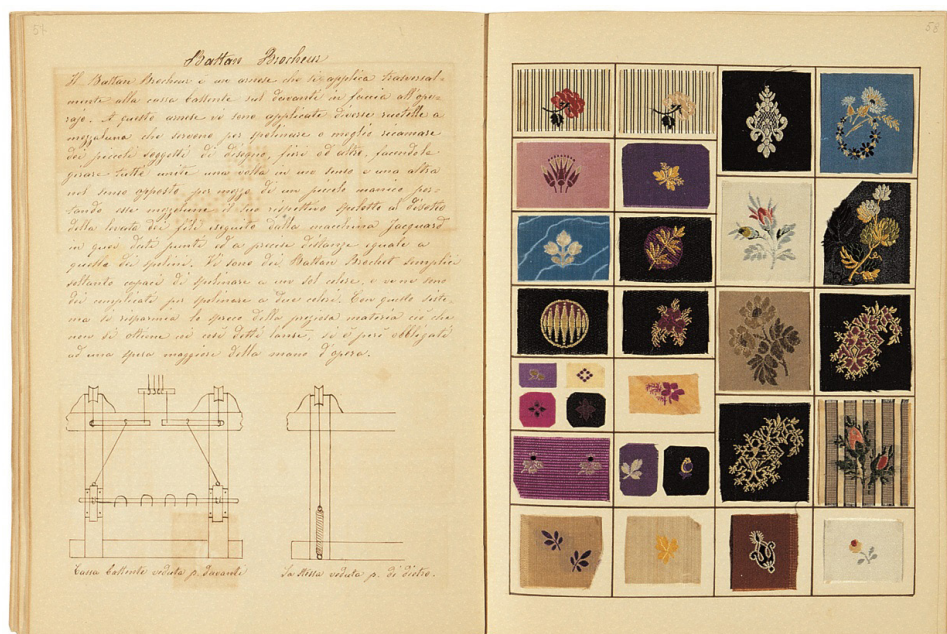 57
58
Battan Brocheur
Il Battan Brocheur è un arnese che si applica trasversal-
mente alla cassa battente sul davanti in faccia all'ope-
rajo. A questo arnese vi sono applicate diverse ruotelle a
mezzaluna che servono per spolinare o meglio ricamare
dei piccoli soggetti di disegno, fiori od altro, facendole
girare tutte unite una volta in un senso e una altra
nel senso opposto, per mezzo di un piccolo manico, por-
tando esse mezzelune il suo rispettivo spoletto al disotto
della levata dei fili eseguita dalla macchina Jacquard
in quei dati punti ed a precise distanze eguale a
quella dei spolini. Vi sono dei Battan Brochet semplici
soltanto capaci di spolinare a un sol colore, e ve ne sono
dei complicati per spolinare a due colori. Con questo siste-
ma si risparmia lo spreco della preziosa materia ciò che
non si ottiene coi così detti lansé, si è però obbligati
ad una spesa maggiore della mano d'opera.
Cassa battente veduta p. davanti
La stessa veduta p. di dietro.